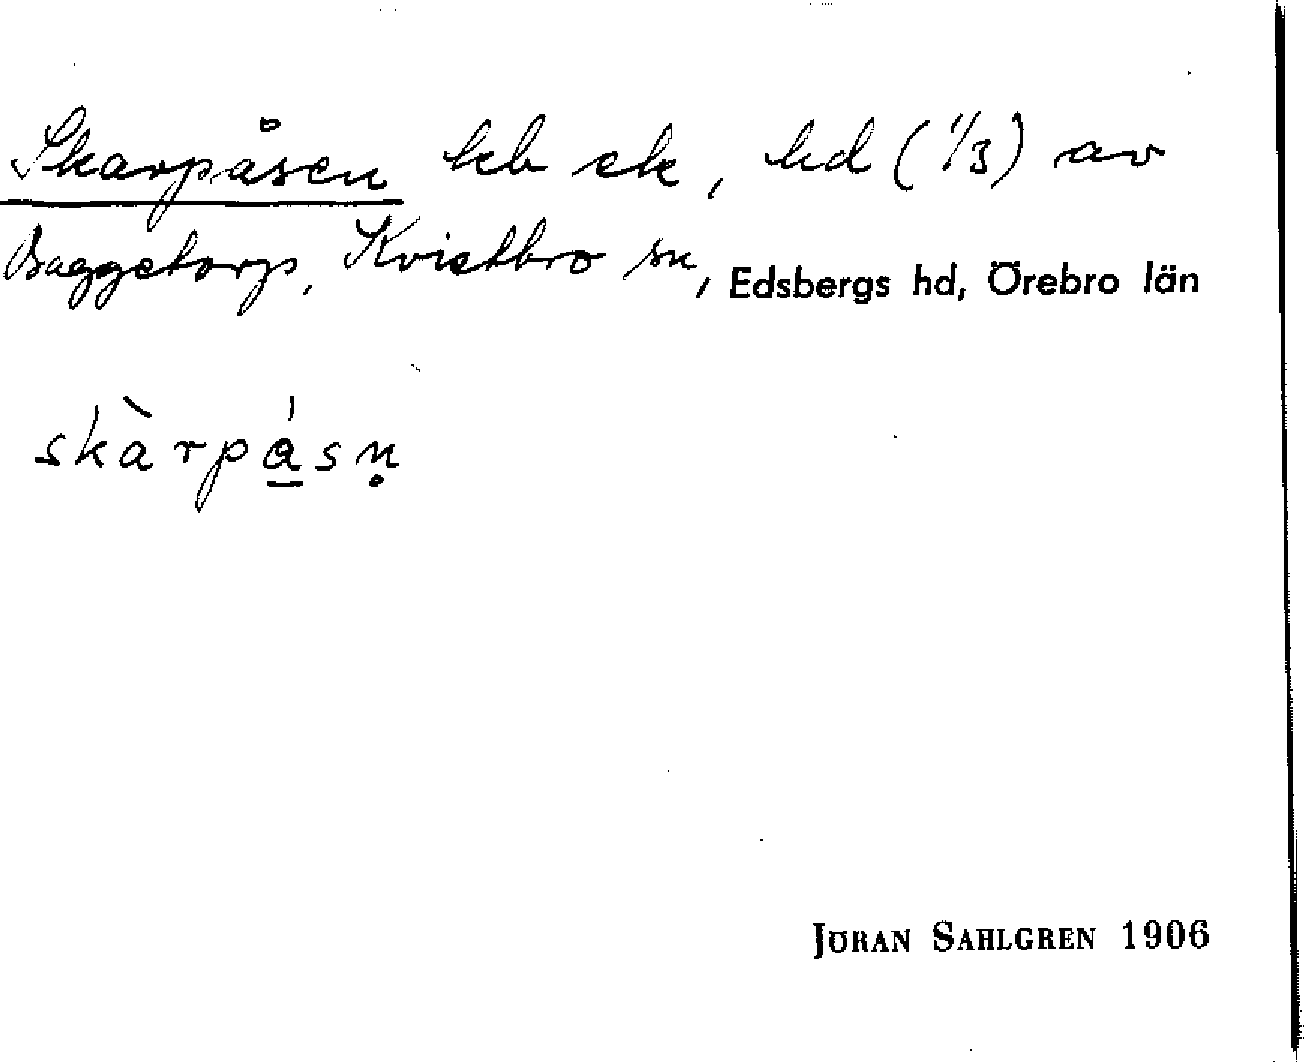 Skarpåsen hb ek, hd (1/3) av
Baggetorp, Kvistbro sn, Edsbergs hd, Örebro län
skàrpá̲sṇ
JÖRAN SAHLGREN 1906